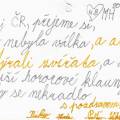 í ČR, přijeme si,
nebyla válka, a a
ýrali zvířata, a
ší hororoví klaun
y se nekradlo.
s pozdravem